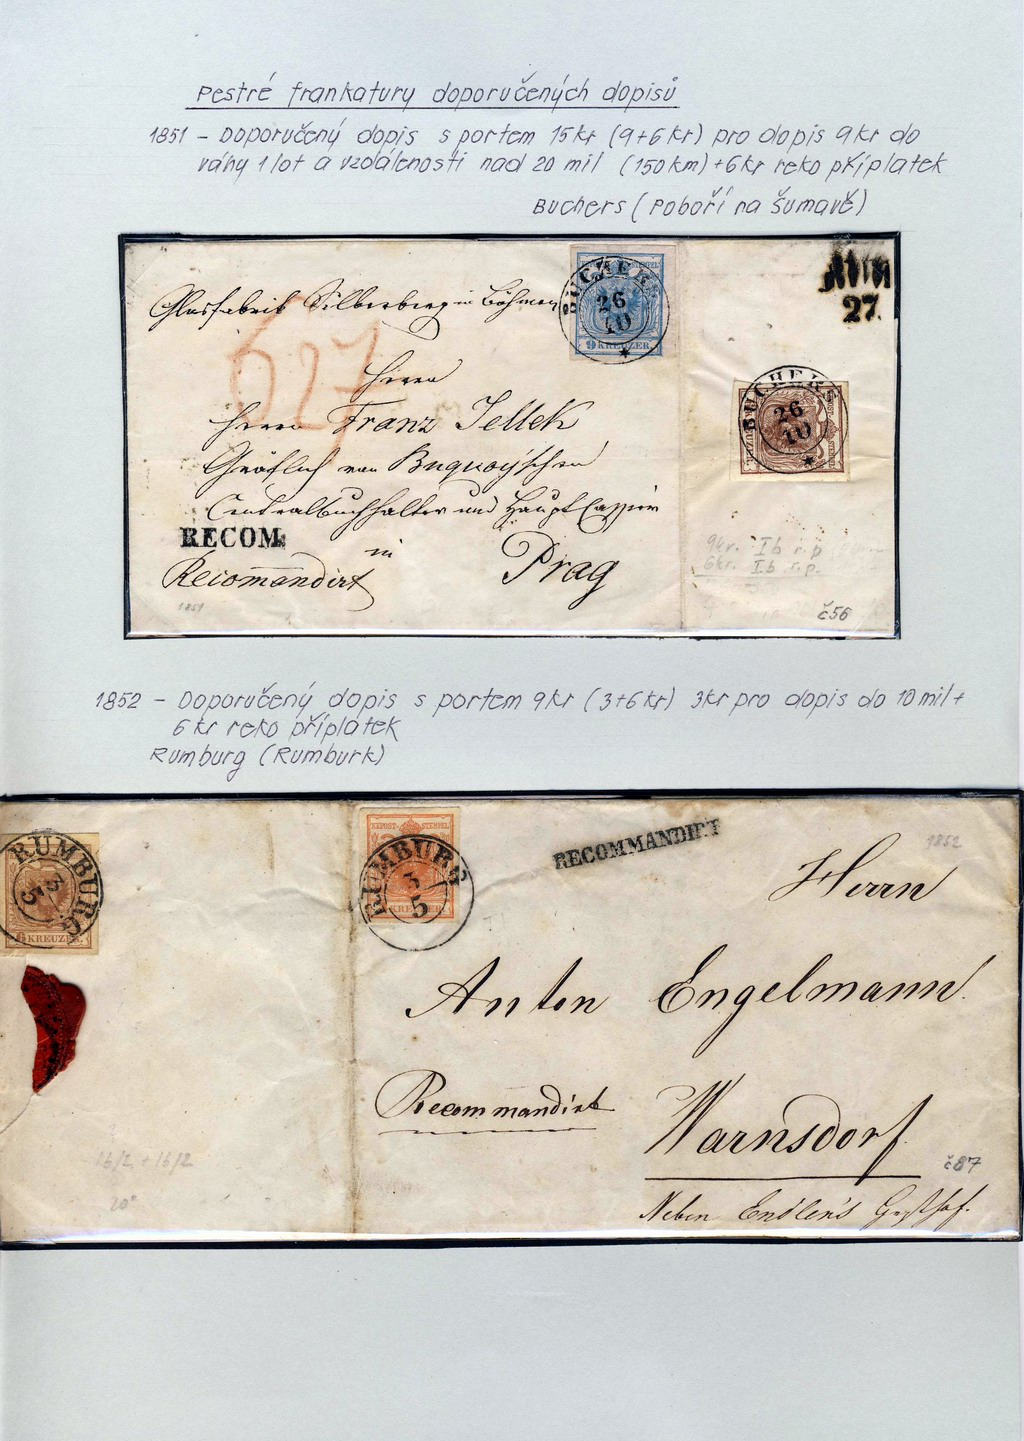 Pestré frankatury doporučených dopisů
1851 - Doporučený dopis s portem 15kr (9+6kr) pro dopis 9kr do
váhy 1 lot a vzdálenosti nad 20 mil (150km) +6kr reko příplatek
Buchers (Pohoří na Šumavě)
Glasfabrik Silberberg in Böhmen
BUCHERS
26
10
9 KREUZER.
27.
BUCHERS
26
10
627
Herrn
Herrn Franz Jellek
Gräflich von Buquoy'schen
Centralbuchhalter und Haupt Cassier
RECOM.
in
Recomandirt
Prag
1851
9kr. Ib r.p
6kr. I.b r.p.
č56
1852 - Doporučený dopis s portem 9kr (3+6kr) 3kr pro dopis do 10 mil +
6 kr reko příplatek
Rumburg (Rumburk)
RUMBURG
3
5
6 KREUZER.
KKPOST-STEMPEL
RUMBURG
3
5
KREUZER.
RECOMMANDIRT
1852
Herrn
Anton Engelmann.
Recommandirt
Warnsdorf
16/2 + 16/2
20°
č87
Neben Endler's Gasthof.